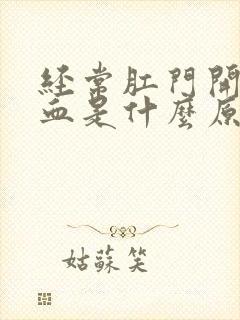 经常肛門開
血是什麼原
姑蘇笑